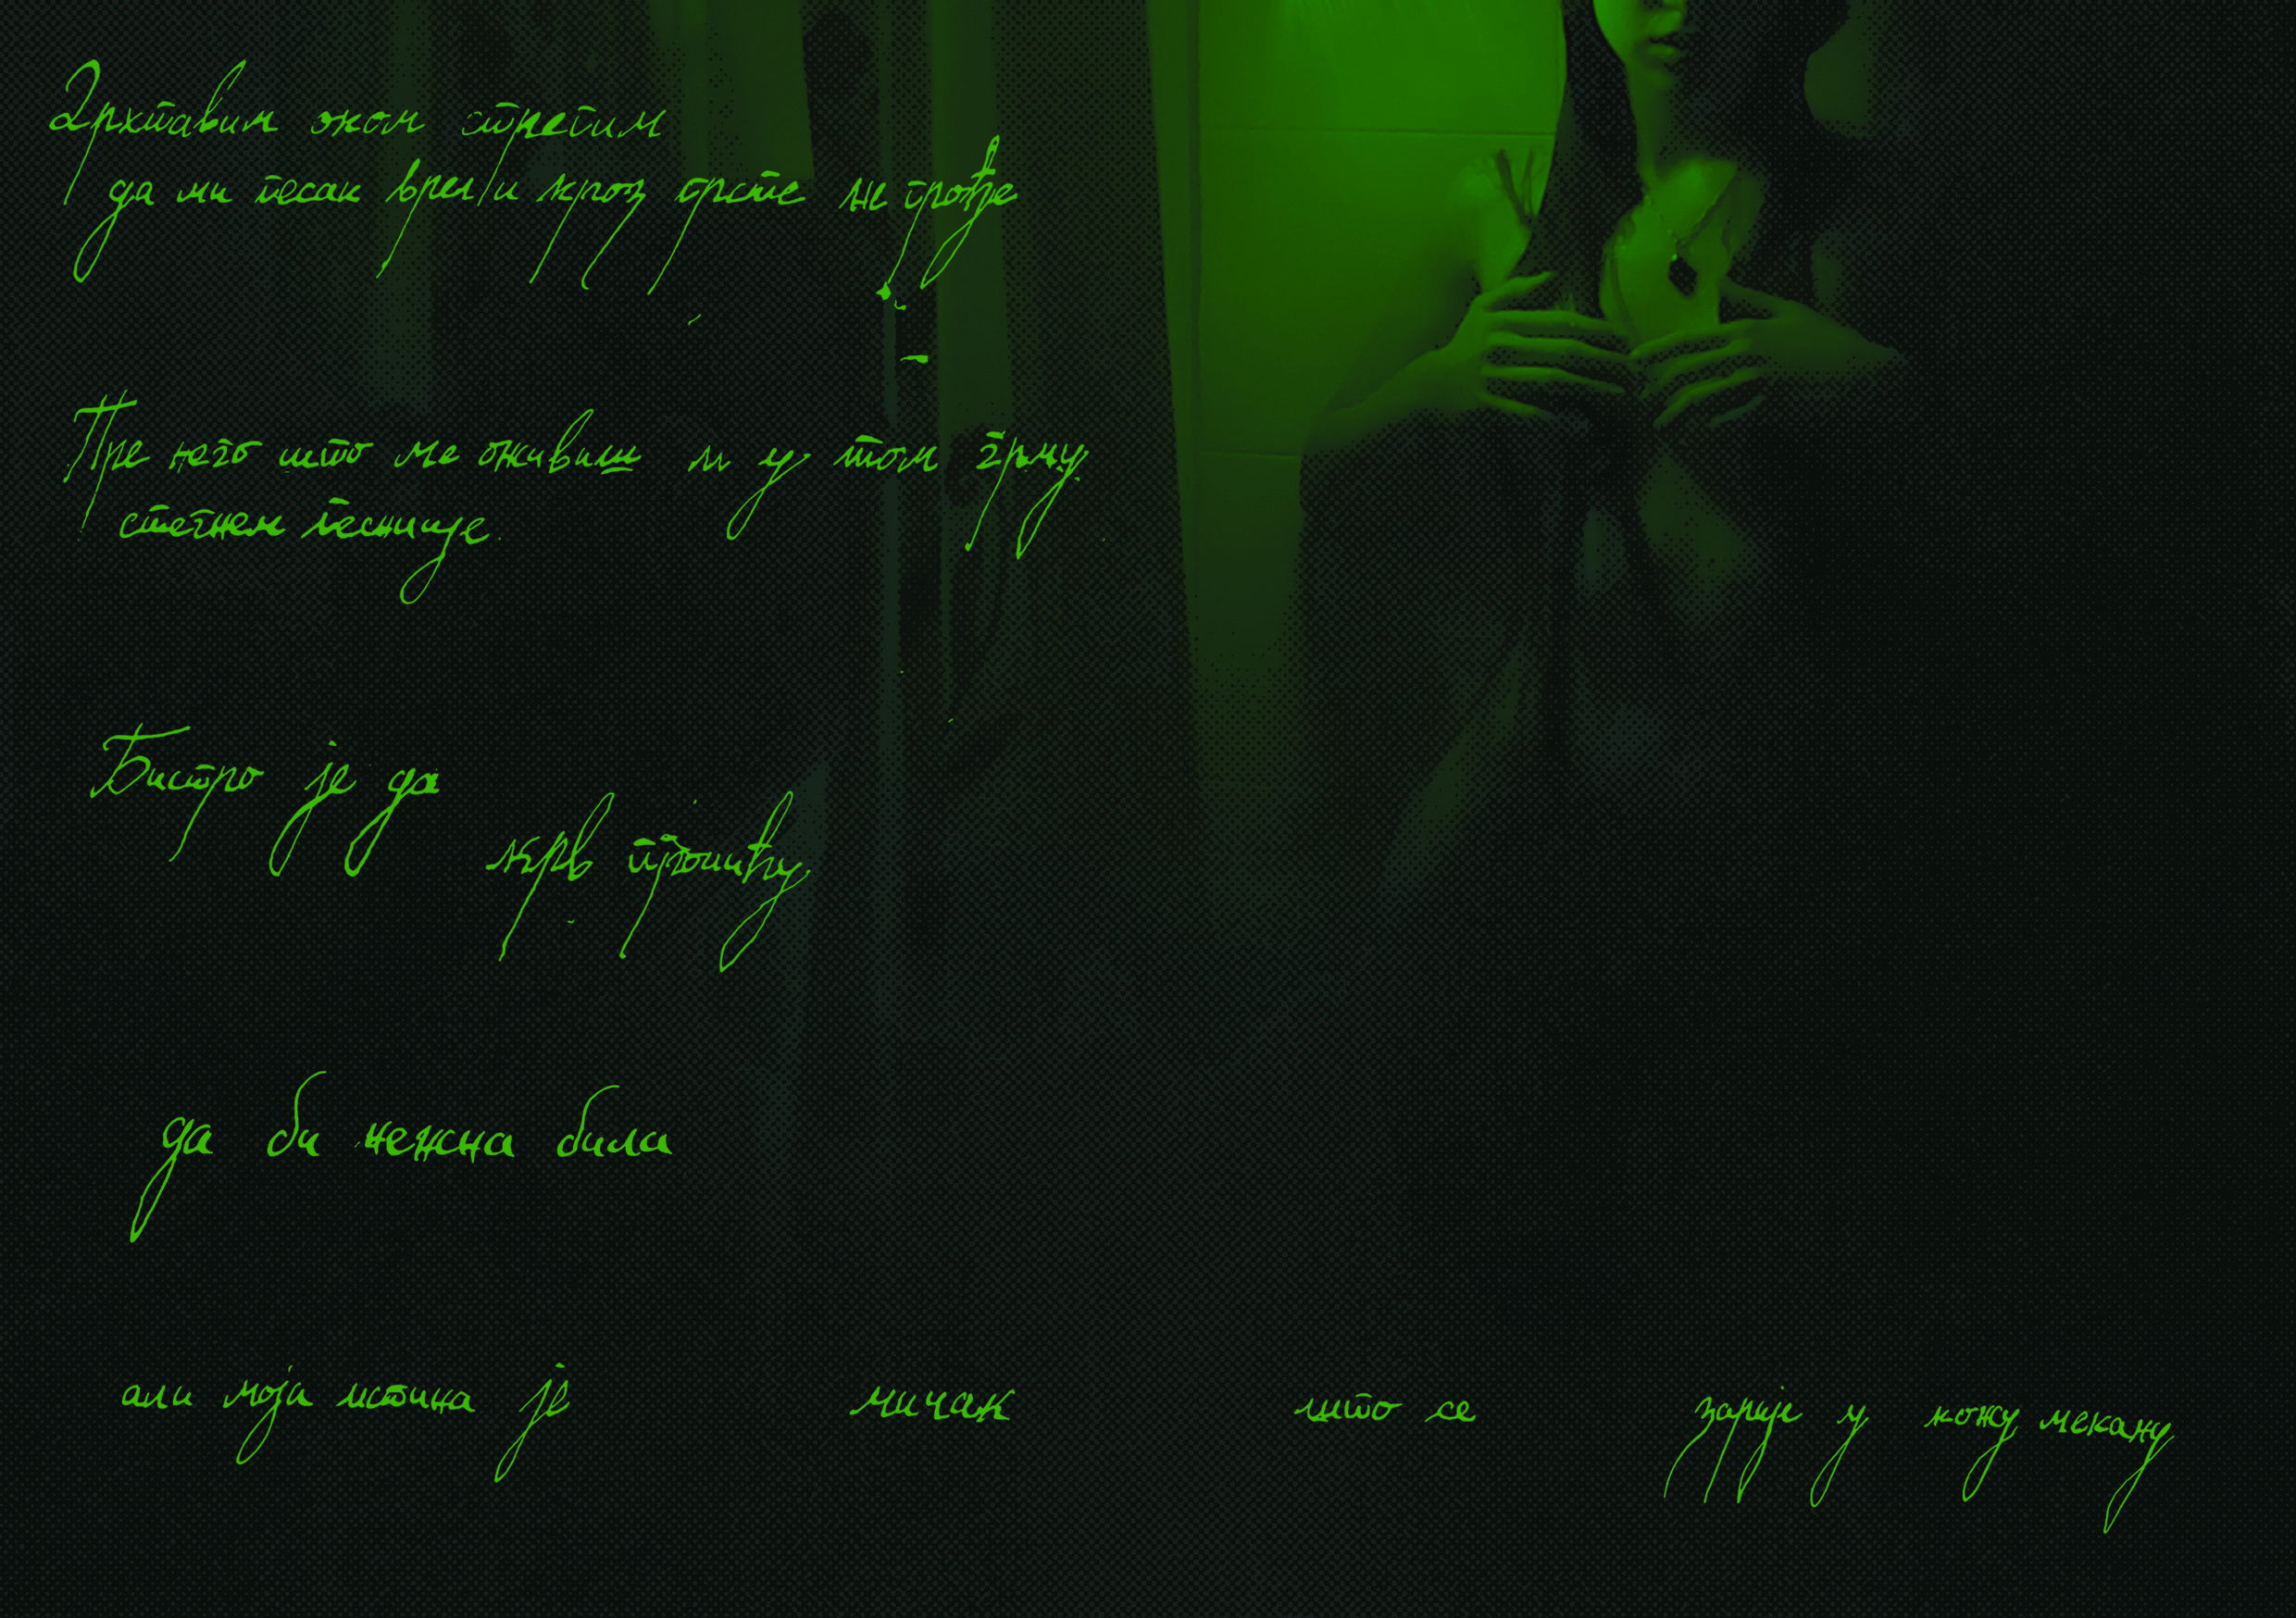 Дрхтавим оком стрепим
да ми песак врели кроз прсте не прође
Пре него што ме оживиш и у том грму
стегнем песнице.
Бистро је да
крв пролићу
да би нежна била
али моја истина је мичак што се зарије у кожу мекану